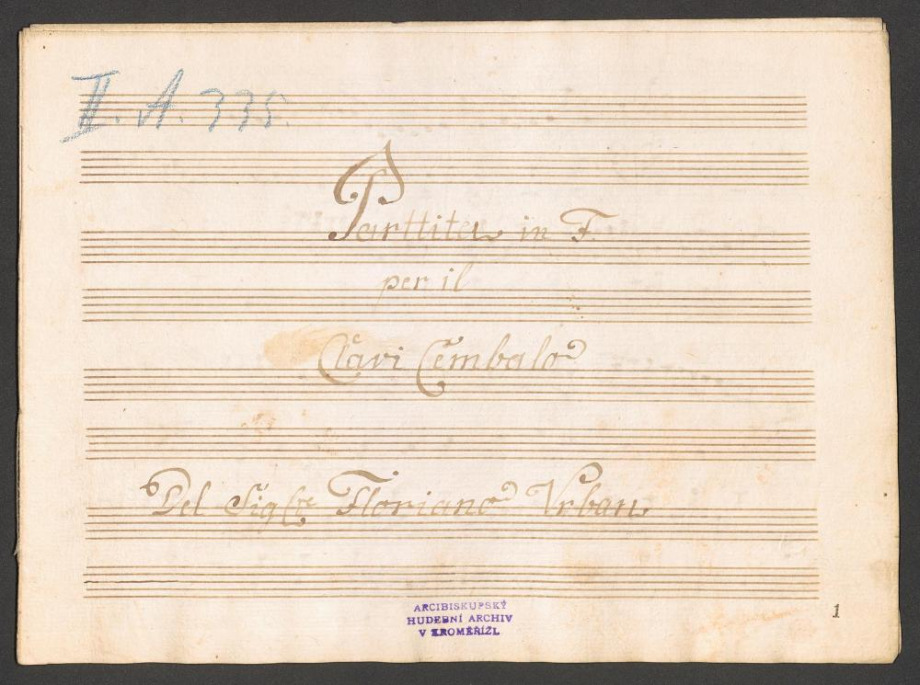 II. A. 335.
Parttita in F.
per il
Clavi Cembalo
Del Sigre Floriano Vrban
ARCIBISKUPSKÝ
HUDEBNÍ ARCHIV
V KROMĚŘÍŽI.
1